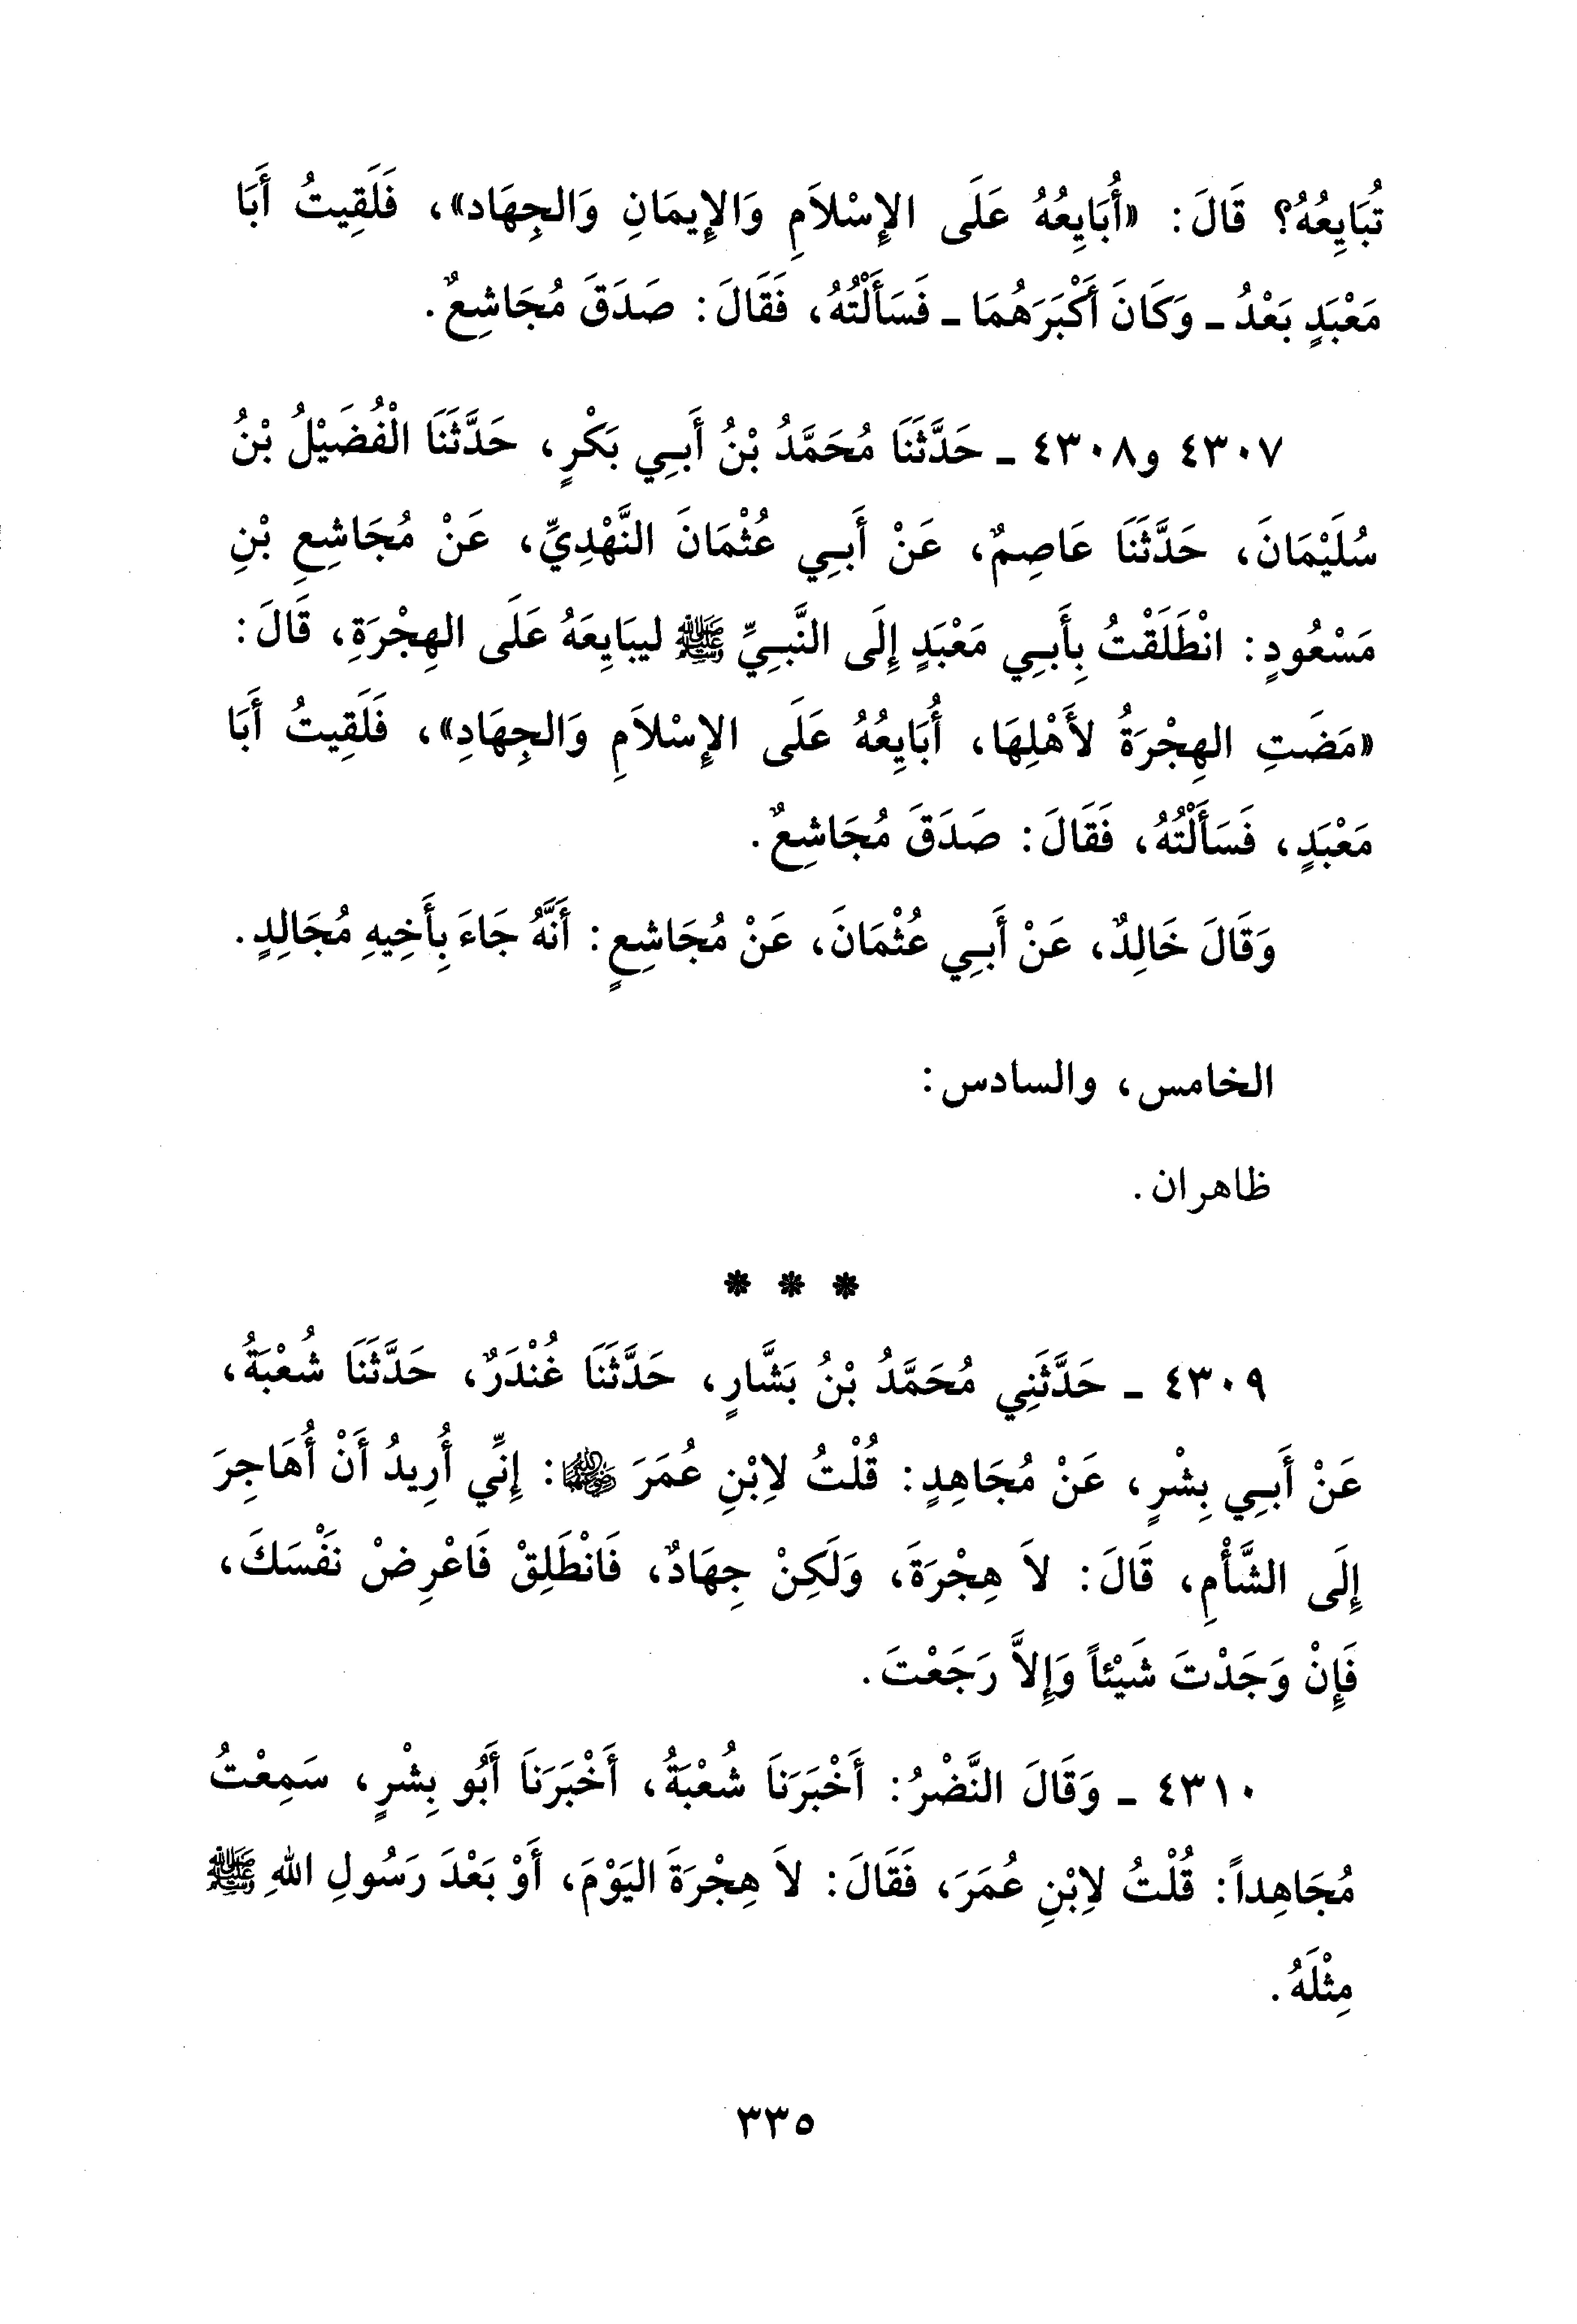 تُبَايِعُهُ؟ قَالَ: «أُبَايِعُهُ عَلَى الإِسْلاَمِ وَالإِيمَانِ وَالجِهَاد»، فَلَقِيتُ أَبَا
مَعْبَدٍ بَعْدُ ـ وَكَانَ أَكْبَرَهُمَا ـ فَسَأَلْتُهُ، فَقَالَ: صَدَقَ مُجَاشِعٌ.
٤٣٠٧ و٤٣٠٨ ـ حَدَّثَنَا مُحَمَّدُ بْنُ أَبِي بَكْرٍ، حَدَّثَنَا الْفُضَيْلُ بْنُ
سُلَيْمَانَ، حَدَّثَنَا عَاصِمٌ، عَنْ أَبِي عُثْمَانَ النَّهْدِيِّ، عَنْ مُجَاشِعِ بْنِ
مَسْعُودٍ: انْطَلَقْتُ بِأَبِي مَعْبَدٍ إِلَى النَّبِيِّ ﷺ ليبَايِعَهُ عَلَى الهِجْرَةِ، قَالَ:
«مَضَتِ الهِجْرَةُ لأَهْلِهَا، أُبَايِعُهُ عَلَى الإِسْلاَمِ وَالجِهَادِ»، فَلَقِيتُ أَبَا
مَعْبَدٍ، فَسَأَلْتُهُ، فَقَالَ: صَدَقَ مُجَاشِعٌ.
وَقَالَ خَالِدٌ، عَنْ أَبِي عُثْمَانَ، عَنْ مُجَاشِعٍ: أَنَّهُ جَاءَ بِأَخِيهِ مُجَالِدٍ.
الخامس، والسادس:
ظاهران.
* * *
٤٣٠٩ ـ حَدَّثَنِي مُحَمَّدُ بْنُ بَشَّارٍ، حَدَّثَنَا غُنْدَرٌ، حَدَّثَنَا شُعْبَةُ،
عَنْ أَبِي بِشْرٍ، عَنْ مُجَاهِدٍ: قُلْتُ لاِبْنِ عُمَرَ رضي الله عنهما: إِنِّي أُرِيدُ أَنْ أُهَاجِرَ
إِلَى الشَّأْمِ، قَالَ: لاَ هِجْرَةَ، وَلَكِنْ جِهَادٌ، فَانْطَلِقْ فَاعْرِضْ نَفْسَكَ،
فَإِنْ وَجَدْتَ شَيْئاً وَإِلاَّ رَجَعْتَ.
٤٣١٠ ـ وَقَالَ النَّضْرُ: أَخْبَرَنَا شُعْبَةُ، أَخْبَرَنَا أَبُو بِشْرٍ، سَمِعْتُ
مُجَاهِداً: قُلْتُ لاِبْنِ عُمَرَ، فَقَالَ: لاَ هِجْرَةَ اليَوْمَ، أَوْ بَعْدَ رَسُولِ اللهِ ﷺ
مِثْلَهُ.
٣٣٥